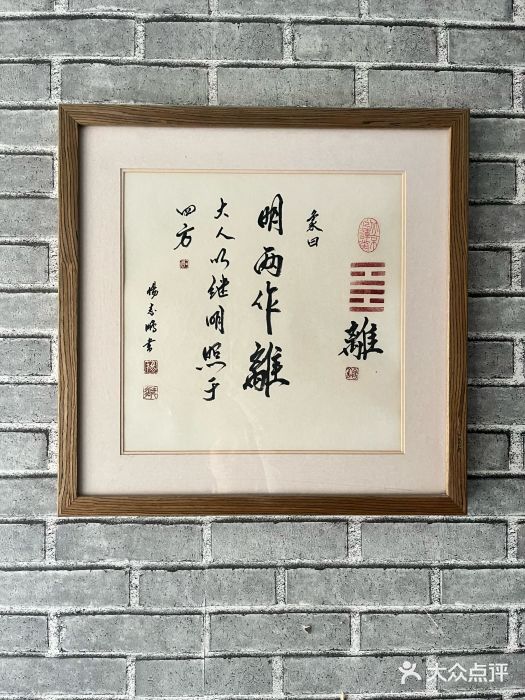 離
象曰
明两作離
大人以继明照于
四方
杨志鹏书
大众点评